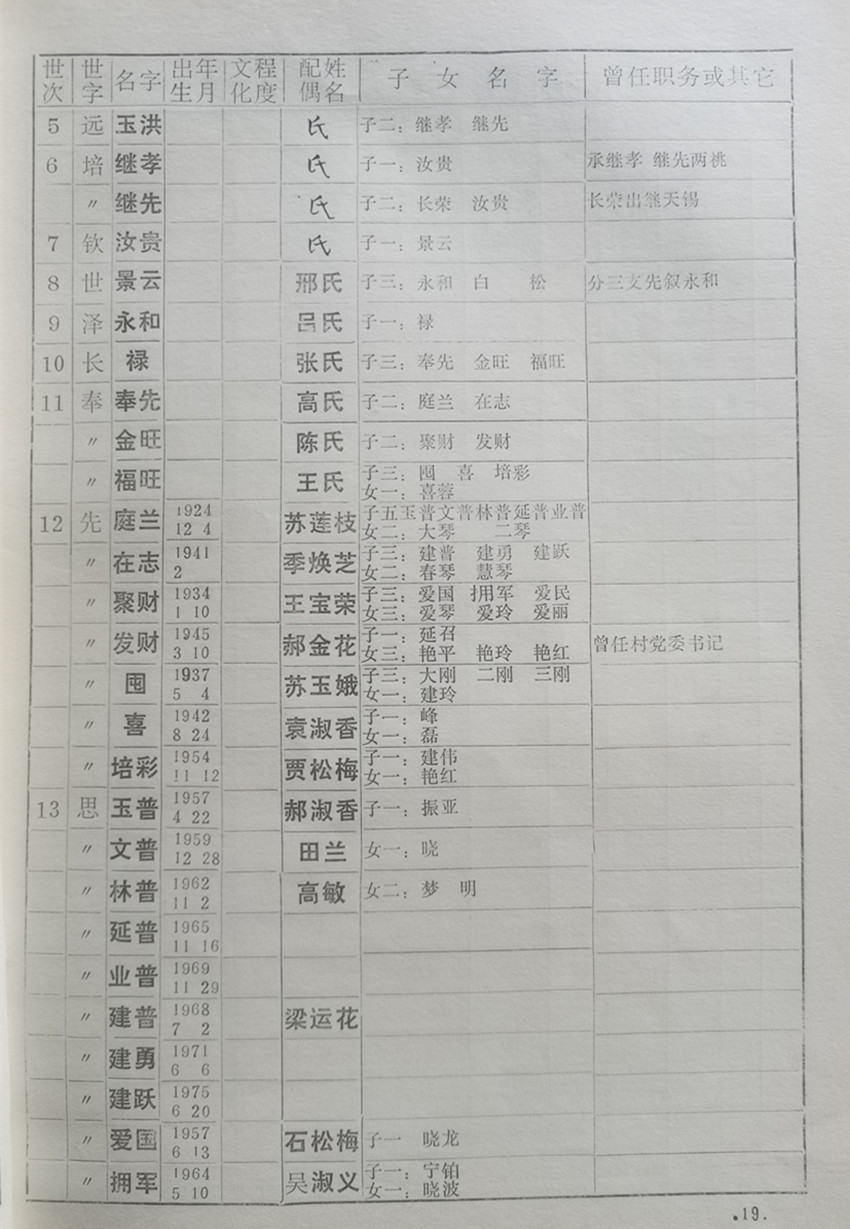 世次 世字 名字 出生年月 文化程度 配偶姓名 子女名字 曾任职务或其它
5 远 玉洪 氏 子二：继孝 继先
6 培 继孝 氏 子一：汝贵 承继孝 继先两祧
〃 继先 氏 子二：长荣 汝贵 长荣出继天锡
7 钦 汝贵 氏 子一：景云
8 世 景云 邢氏 子三：永和 白 松 分三支先叙永和
9 泽 永和 吕氏 子一：禄
10 长 禄 张氏 子三：奉先 金旺 福旺
11 奉 奉先 高氏 子二：庭兰 在志
〃 金旺 陈氏 子二：聚财 发财
〃 福旺 王氏 子三：囤 喜 培彩
女一：喜蓉
12 先 庭兰 1924 12 4 苏莲枝 子五玉普文普林普延普业普
女二：大琴 二琴
〃 在志 1941 2 季焕芝 子三：建普 建勇 建跃
女二：春琴 慧琴
〃 聚财 1934 1 10 王宝荣 子三：爱国 拥军 爱民
女三：爱琴 爱玲 爱丽
〃 发财 1945 3 10 郝金花 子一：延召 曾任村党委书记
女三：艳平 艳玲 艳红
〃 囤 1937 5 4 苏玉娥 子三：大刚 二刚 三刚
女一：建玲
〃 喜 1942 8 24 袁淑香 子一：峰
女一：磊
〃 培彩 1954 11 12 贾松梅 子一：建伟
女一：艳红
13 思 玉普 1957 4 22 郝淑香 子一：振亚
〃 文普 1959 12 28 田兰 女一：晓
〃 林普 1962 11 2 高敏 女二：梦 明
〃 延普 1965 11 16
〃 业普 1969 11 29
〃 建普 1968 7 2 梁运花
〃 建勇 1971 6 6
〃 建跃 1975 6 20
〃 爱国 1957 6 13 石松梅 子一 晓龙
〃 拥军 1964 5 10 吴淑义 子一：宁铂
女一：晓波
.19.